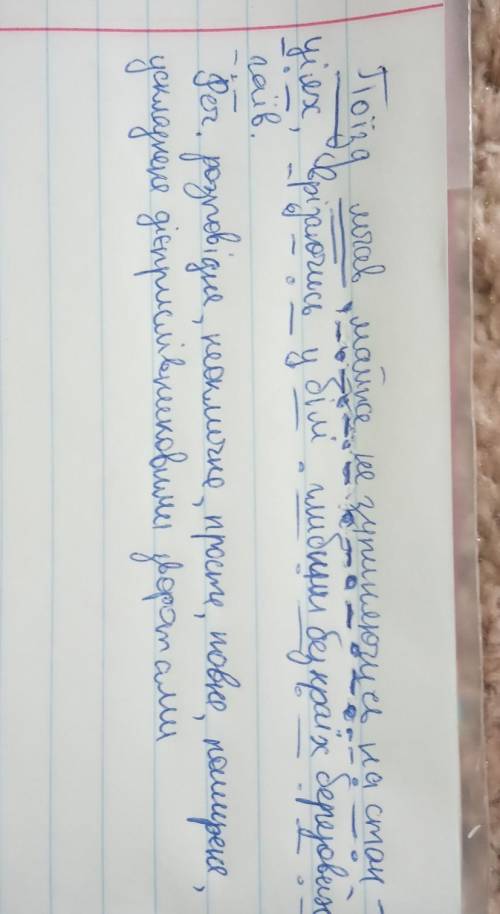 Поїзд мчав, майже не зупиняючись на стан-
ціях, врізаючись у білі глибини безкраїх березових
гаїв.
Реч. розповідне, неоклична, просте, повне, поширене,
ускладнене дієприслівниковими зворотами